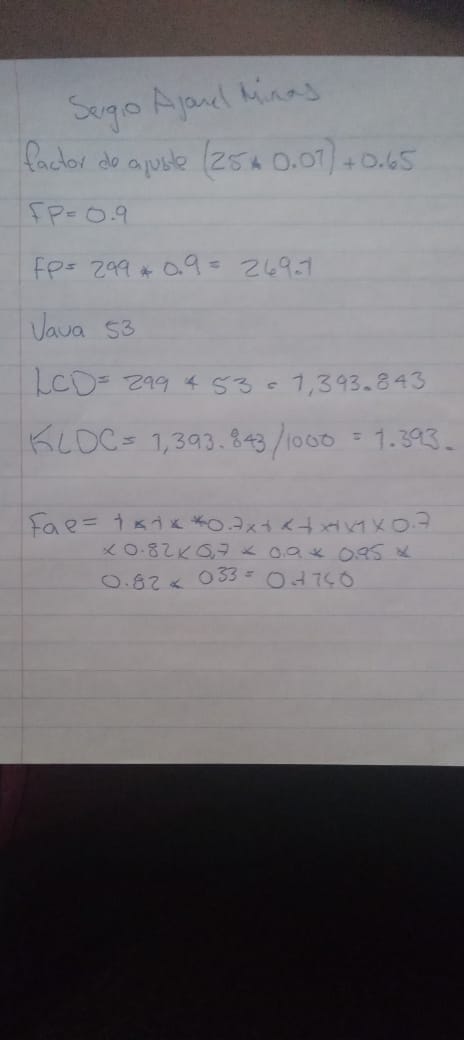 Sergio
factor de ajuste (25 * 0.01) + 0.65
FP= 0.9
FP= 299 * 0.9 = 269.1
Java 53
LCD= 299 * 53 = 1,393.843
KLDC= 1,393.843/1000 = 1.393.
Fae= 1 x 1 x *0.7x1 x 1 x1x1 x 0.7
x 0.82 x 0,7 x 0.9 x 0.95 x
0.82 x 033 = 0.1740